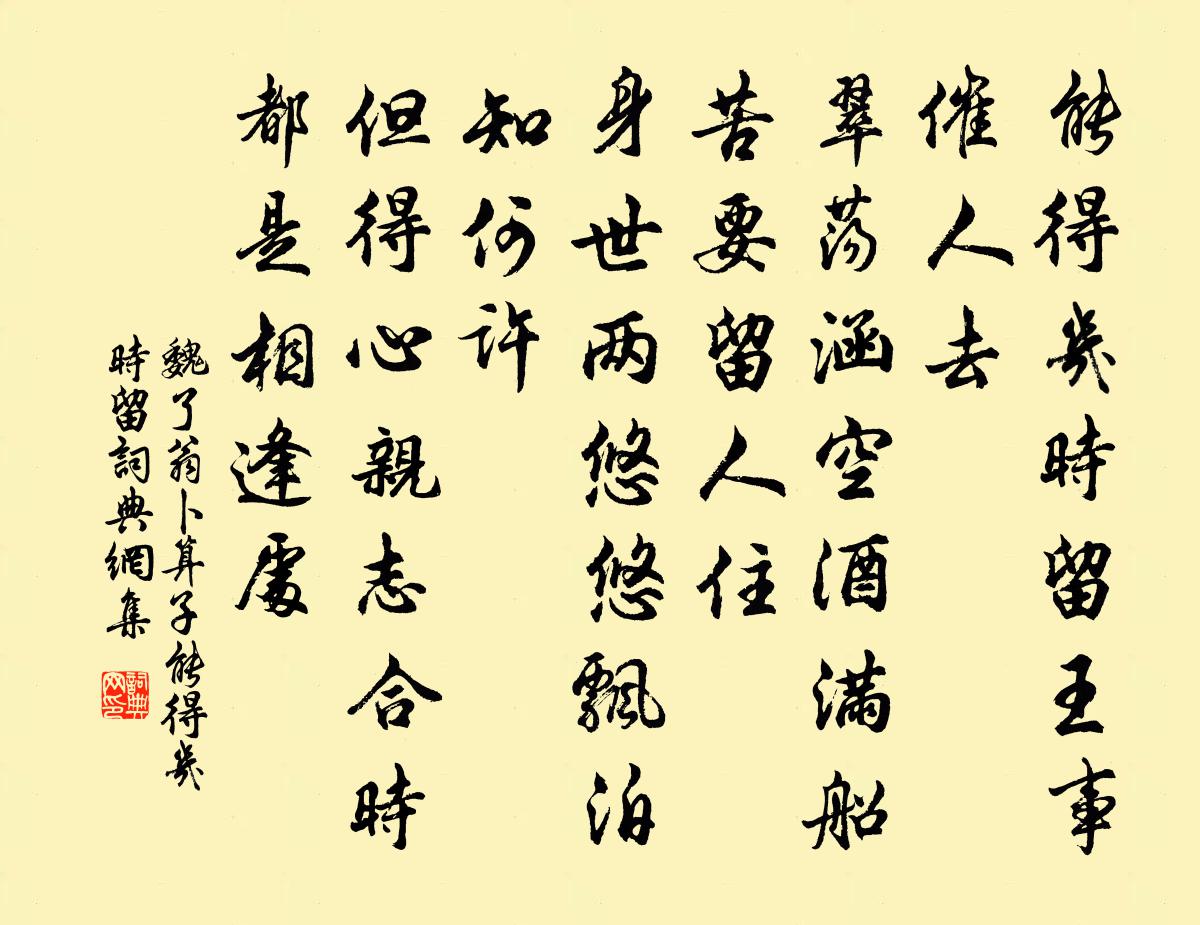 能得幾時留王事
催人去
翠荡涵空酒滿船
苦要留人住
身世两悠悠飄泊
知何許
但得心親志合時
都是相逢處
魏了翁卜算子能得幾
時留詞典網集
詞典
网印